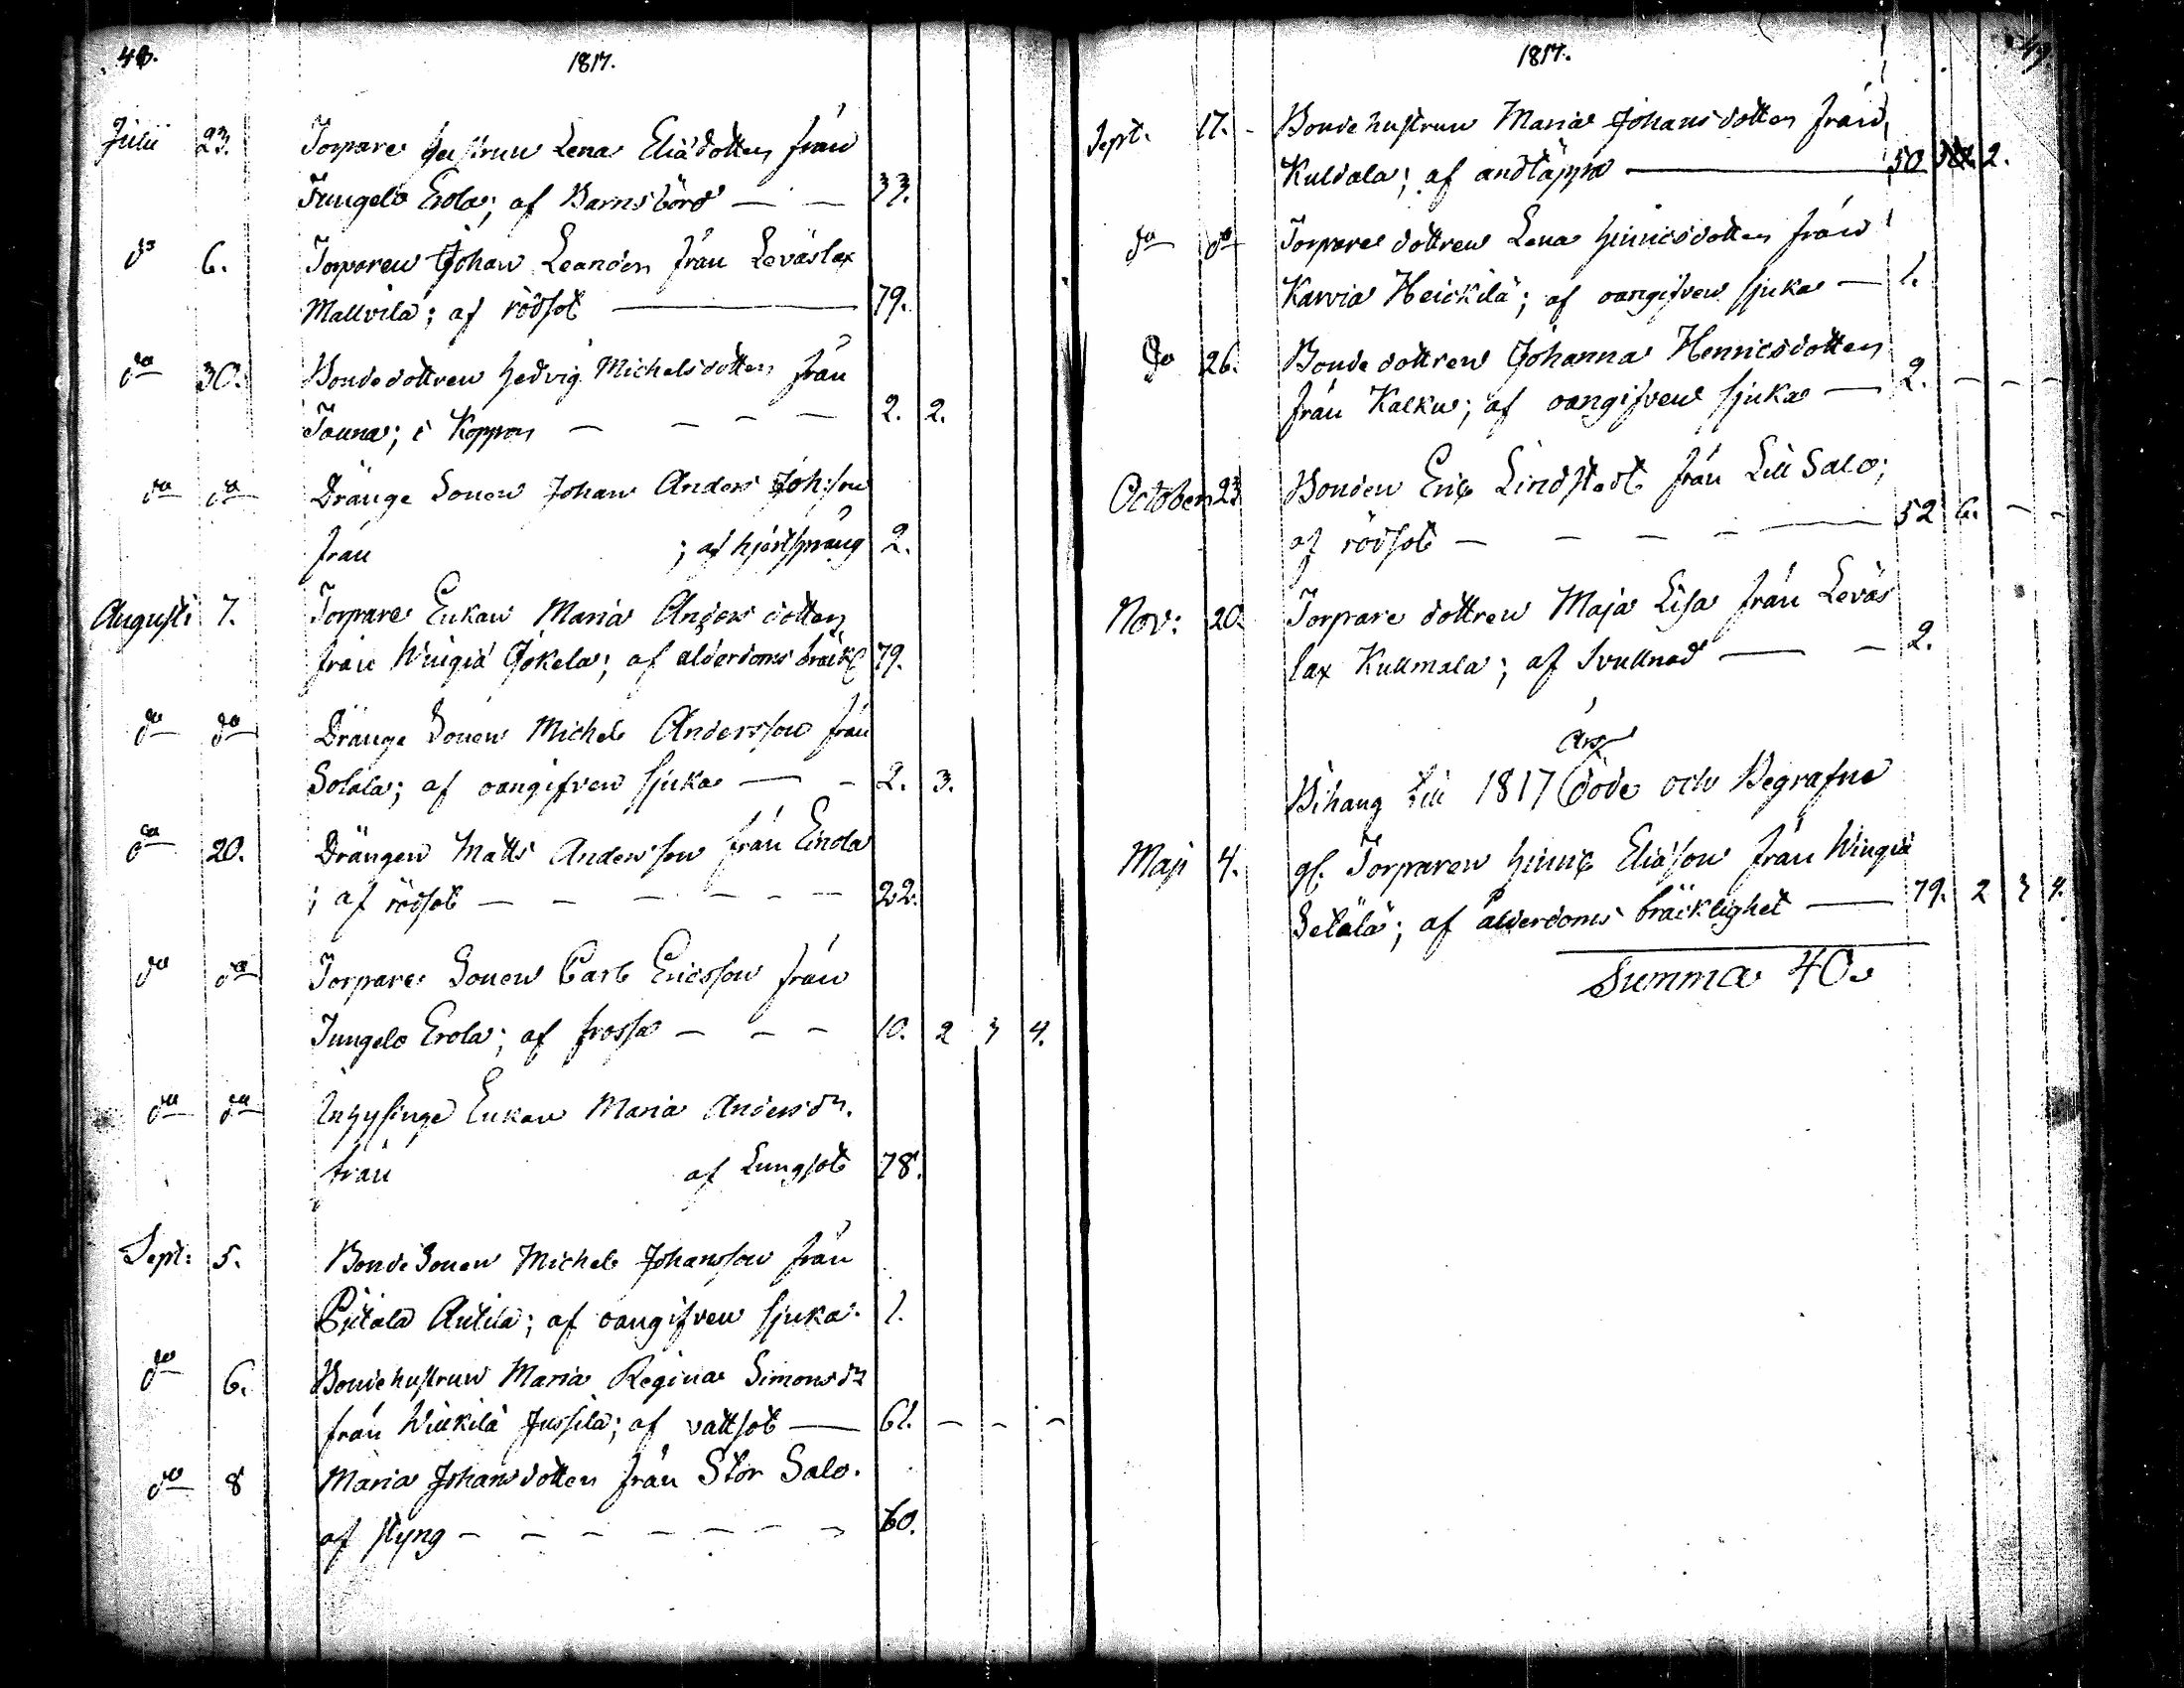 48.
1817.
Julii 23. Torpare hustrun Lena Eliædotter från
Jungelo Erola; af Barnsbörd — — 33.
do 6. Torparen Johan Leander från Leväslax
Mallvila; af rödsot — 79.
do 30. Bondedottren Hedvig Michelsdotter från
Tauna; i Koppor — — — — 2. 2.
do do Dränge Sonen Johan Anders Johsson
från ; af hjertsprång 2.
Augusti 7. Torpare Enkan Maria Anders dotter
från Wingiä Jokela; af alderdoms bräckl 79.
do do Dränge Sonen Michel Andersson från
Solala; af oangifven sjuka — — 2. 3.
do 20. Drängen Matts Andersson från Einola
; af rödsot — — — — — — 22.
do do Torpare Sonen Carl Ericsson från
Jungelo Erola; af frossa — — — 10. 2 3 4.
do do Inhysinge Enkan Maria Andersdr.
från af Lungsot 78.
Sept: 5. Bonde Sonen Michel Johansson från
Pijtala Antila; af oangifven sjuka. 1.
do 6. Bondehustrun Maria Regina Simonsdr
från Willkilä Jussila; af vattsot — 61. — — —
do 8 Maria Johansdotter från Stor Salo.
af styng — — — — — — — 60.
49.
1817.
Sept. 17. - Bondehustrun Maria Johansdotter från
Kuldala; af andtäppa — 50 2.
do do Torpare dottren Lena Hinricsdotter från
Karvia Heickilä; af oangifven sjuka — 1.
do 26. Bonde dottren Johanna Henricsdotter
från Kalku; af oangifven sjuka — 2. — — —
October 23 Bonden Eric Lindstedt från Lill Salo;
af rödsot — — — — — 52 6. — —
Nov: 20. Torpare dottren Maja Lisa från Leväs
lax Kullmala; af Svullnad — — 2.
års
Bihang till 1817 döde och Begrafne
Maji 4. gl. Torparen Hinric Eliæson från Wingiä
Setälä; af ålderdoms bräcklighet — 79. 2 3 4.
Summa 40.